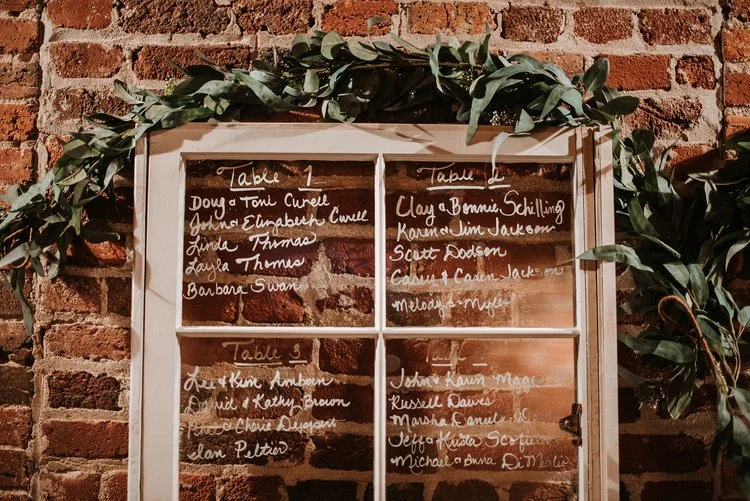 Table 1
Doug & Toni Curell
John & Elizabeth Curell
Linda Thomas
Layla Thomas
Barbara Swan
Table 2
Clay & Bonnie Schilling
Karen & Jim Jackson
Scott Dodson
Casey & Caren Jackson
Melody & Myles
Table 3
Lee & Kim Amboin
David & Kathy Brown
& Cherie Deppert
Ian Peltier
John & Karen
Russell Daves
Marsha Daniels
Jeff & Krista Scofield
Michael & Anna DiMeglio